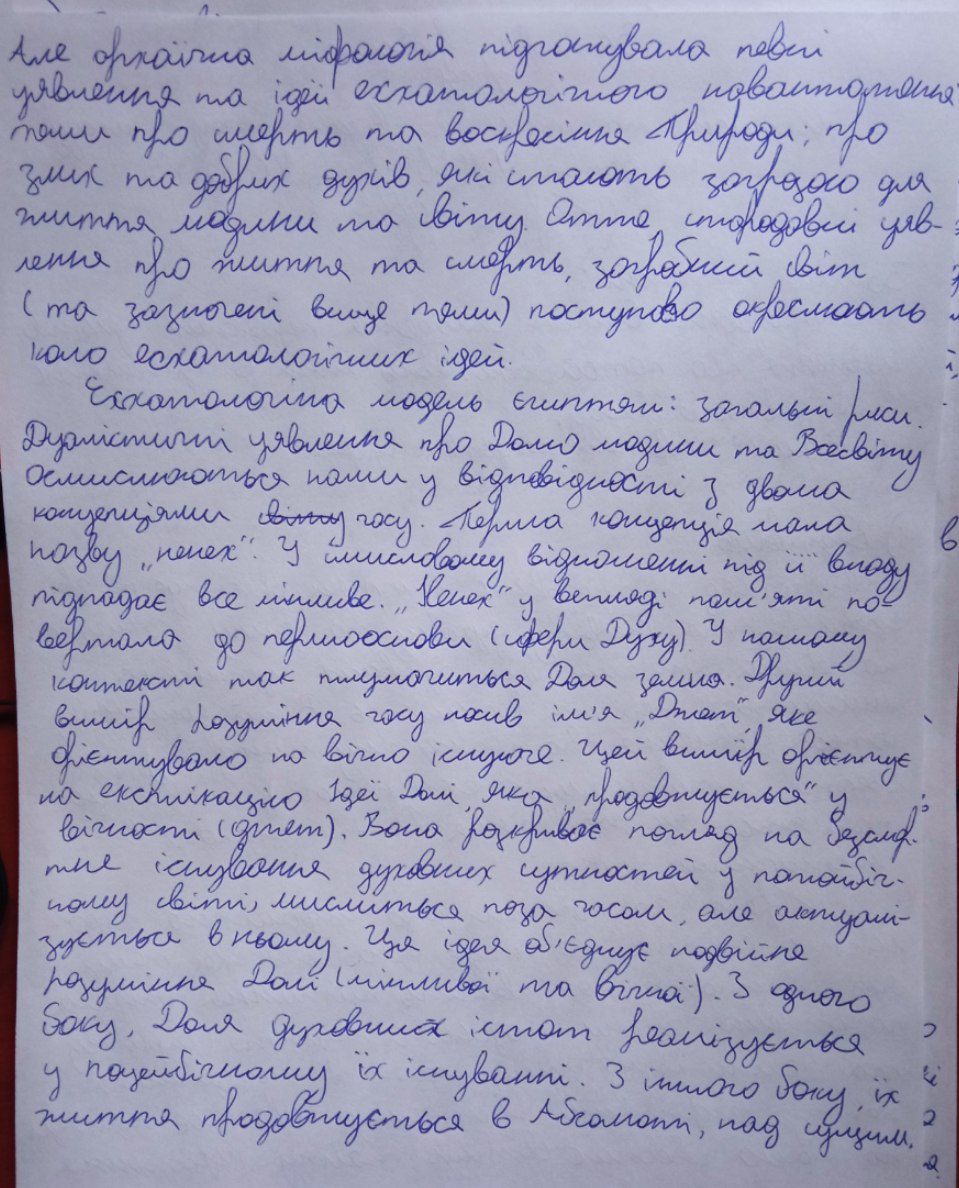 Але архаїчна міфологія підготувала певні
уявлення та ідеї есхатологічного навантаження
теми про смерть та воскресіння Природи; про
злих та добрих духів, які стають загрозою для
життя людини та світу. Отже, стародавні уяв-
лення про життя та смерть, загробний світ
(та зазначені вище теми) поступово окреслюють
коло есхатологічних ідей.
Есхатологічна модель єгиптян: загальні риси.
Дуалістичні уявлення про Долю людини та Всесвіту
осмислюються нами у відповідності з двома
концепціями світу часу. Перша концепція мала
назву „нехех". У смисловому відношенні під її владу
підпадає все мінливе. „Нехех" у вигляді пам'яті по-
вертала до першооснови (сфери Духу). У нашому
контексті так тлумачиться Доля земна. Другий
вимір розуміння часу носив ім'я „Джет", яке
орієнтувало на вічно існуюче. Цей вимір орієнтує
на експлікацію Ідеї Долі, яка „продовжується" у
вічності (джет). Вона розкриває погляд на безсмер-
тне існування духовних сутностей у потойбіч-
ному світі, мислиться поза часом, але актуалі-
зується в ньому. Ця ідея об'єднує подвійне
розуміння Долі (мінливої та вічної). З одного
боку, Доля духовних істот реалізується
у поцейбічному їх існуванні. З іншого боку, їх
життя продовжується в Абсолюті, над сущим.